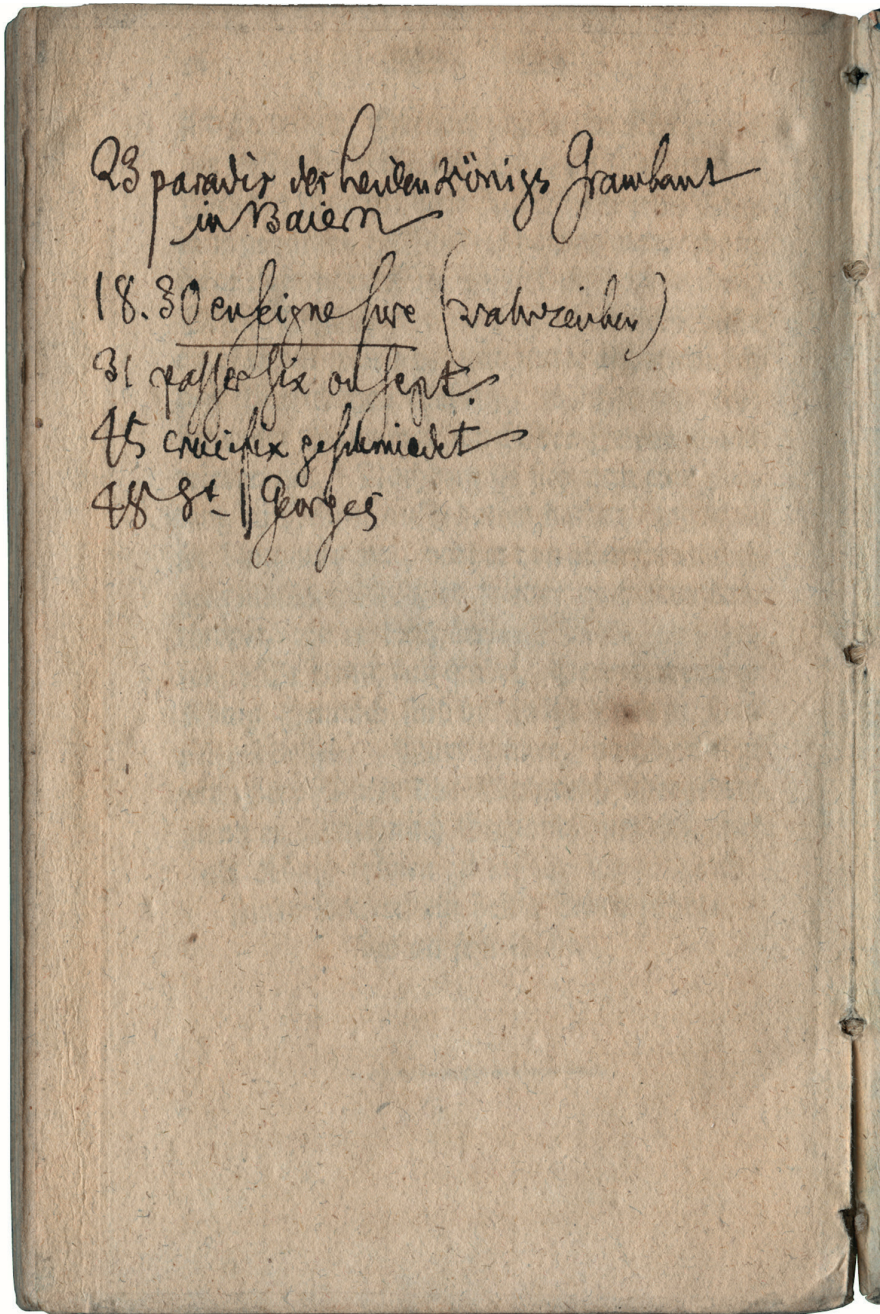 23 paradis des heidenkönigs Grambant
in Baiern
18.30 enseigne sure (wahrzeichen)
31 passer six ou sept.
45 crucifix geschmiedet
48 St. Georges